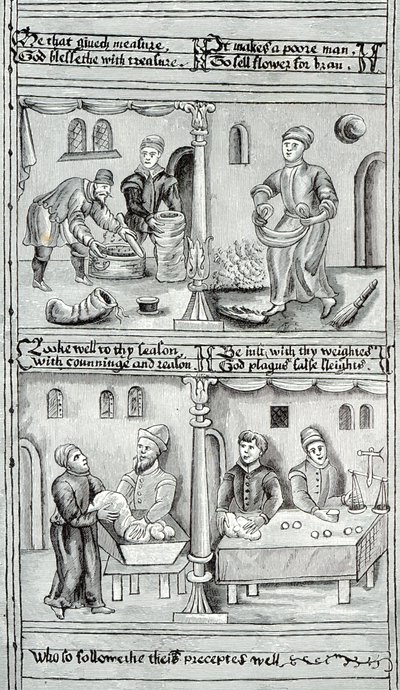 He that giueth measure,
God blessethe with treasure.
It makes a poore man,
To sell flower for bran.
Looke well to thy season,
with counninge and reason.
Be iust, with thy weightes
God plagus false sleights.
Who so followethe theis preceptes well